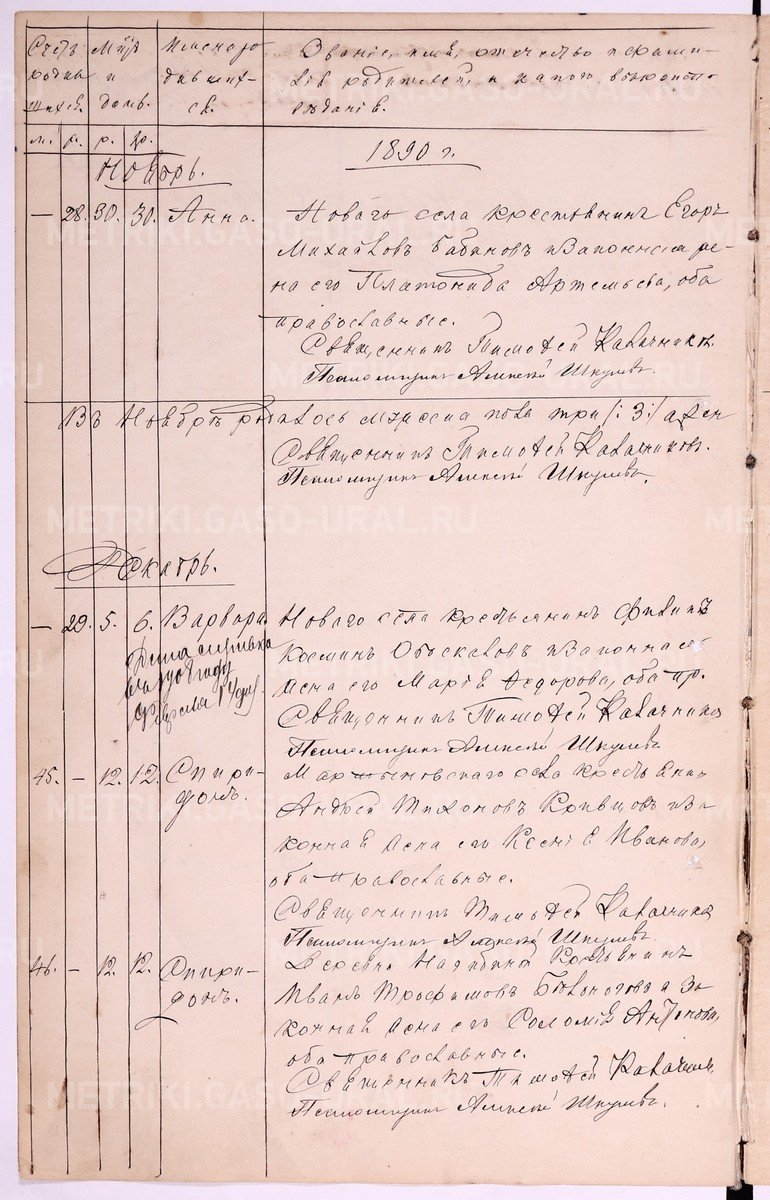 Счетъ родившихся.
Мѣсяцъ и день.
Имена родившихся.
Званіе, имя, отчество и фамилія родителей, и какого вѣроисповѣданія.
м. р. р. кр.
1890 г.
Ноябрь.
— 28. 30. 30. Анна. Новаго села крестьянинъ Егоръ
Михайловъ Бабиновъ и законная же-
на его Платонида Артемьева, оба
православные.
Священникъ Тимоѳей Калачниковъ.
Псаломщикъ Алексѣй Шкулевъ.
Въ Ноябрѣ родилось мужеска пола три /: 3 :/
Священникъ Тимоѳей Калачниковъ.
Псаломщикъ Алексѣй Шкулевъ.
Декабрь.
— 29. 5. 6. Варвара. Новаго села крестьянинъ Филипъ
Косминъ Обоскаловъ и законная
жена его Марія Ѳедорова, оба пр.
Священникъ Тимоѳей Калачниковъ
Псаломщикъ Алексѣй Шкулевъ
45. — 12. 12. Спири-
донъ. Мартыновскаго села крестьянинъ
Андрей Тихоновъ Кривцовъ и за-
конная жена его Ксенія Иванова,
оба православные.
Священникъ Тимоѳей Калачниковъ
Псаломщикъ Алексѣй Шкулевъ.
46. — 12. 12. Спири-
донъ. Деревни крестьянинъ
Иванъ Трофимовъ Бѣлоноговъ и за-
конная жена его Соломія Антонова,
оба православные.
Священникъ Тимоѳей Калачник.
Псаломщикъ Алексѣй Шкулевъ.
METRIKI.GASO-URAL.RU